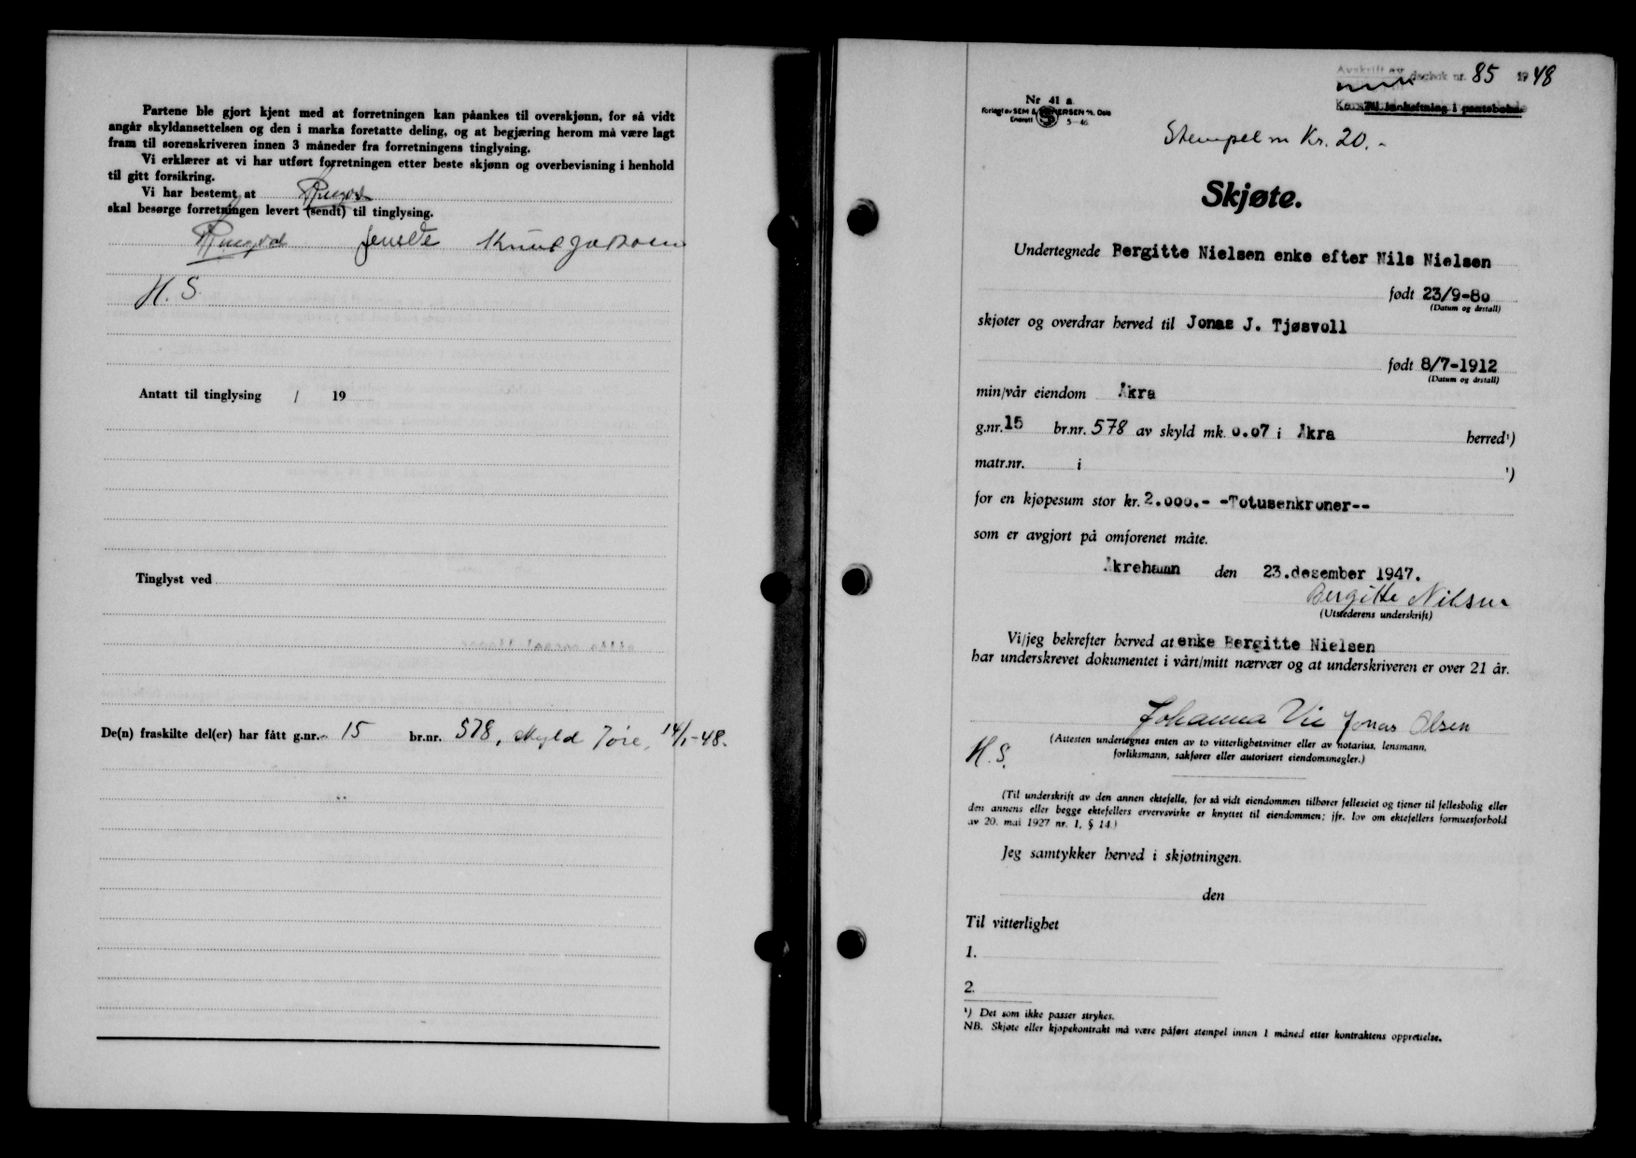 Partene ble gjort kjent med at forretningen kan påankes til overskjønn, for så vidt
angår skyldansettelsen og den i marka foretatte deling, og at begjæring herom må være lagt
fram til sorenskriveren innen 3 måneder fra forretningens tinglysing.
Vi erklærer at vi har utført forretningen etter beste skjønn og overbevisning i henhold
til gitt forsikring.
Vi har bestemt at
skal besørge forretningen levert (sendt) til tinglysing.
H. S.
Antatt til tinglysing / 19
Tinglyst ved
De(n) fraskilte del(er) har fått g.nr. 15 br.nr. 578, skyld 7øre, 14/1-48.
dagbok nr. 85 1948
Til innheftning i panteboka
Nr 41 a
Forlagt av SEM & STENERSEN A/S, Oslo
Enerett S 5-46
Stempel m Kr. 20.-
Skjøte.
Undertegnede Bergitte Nielsen enke efter Nils Nielsen
født 23/9-80
(Datum og årstall)
skjøter og overdrar herved til Jonas J. Tjøsvoll
født 8/7-1912
(Datum og årstall)
min/vår eiendom Åkra
g.nr. 15 br.nr. 578 av skyld mk. 0.07 i Åkra herred ¹)
matr.nr. i ¹)
for en kjøpesum stor kr. 2.000.- -Totusenkroner--
som er avgjort på omforenet måte.
Åkrehamn den 23.desember 1947.
Bergitte Nilsen
(Utstederens underskrift)
Vi/jeg bekrefter herved at enke Bergitte Nielsen
har underskrevet dokumentet i vårt/mitt nærvær og at underskriveren er over 21 år.
Johanna Vie Jonas Olsen
(Attesten undertegnes enten av to vitterlighetsvitner eller av notarius, lensmann,
H. S. forliksmann, sakfører eller autorisert eiendomsmegler.)
(Til underskrift av den annen ektefelle, for så vidt eiendommen tilhører felleseiet og tjener til fellesbolig eller
den annens eller begge ektefellers ervervsvirke er knyttet til eiendommen; jfr. lov om ektefellers formuesforhold
av 20. mai 1927 nr. 1, § 14.)
Jeg samtykker herved i skjøtningen.
den
Til vitterlighet
1.
2.
¹) Det som ikke passer strykes.
NB. Skjøte eller kjøpekontrakt må være påført stempel innen 1 måned etter kontraktens opprettelse.